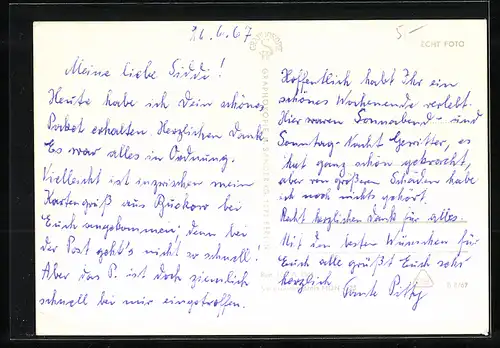 21.6.67
5.-
ECHT FOTO
Meine liebe Siddi!
Heute habe ich Dein schönes
Paket erhalten. Herzlichen Dank.
Es war alles in Ordnung.
Vielleicht ist inzwischen mein
Kartengruß aus Buckow bei
Euch angekommen; denn bei
der Post geht's nicht so schnell!
Aber das P. ist doch ziemlich
schnell bei mir eingetroffen.
Hoffentlich habt Ihr ein
schönes Wochenende verlebt.
Hier waren Sonnabend- und
Sonntag-Nacht Gewitter, es
hat ganz schön gekracht,
aber von größeren Schäden habe
ich noch nichts gehört.
Recht herzlichen Dank für alles.
Mit den besten Wünschen für
Euch alle grüßt Euch sehr
herzlich Tante